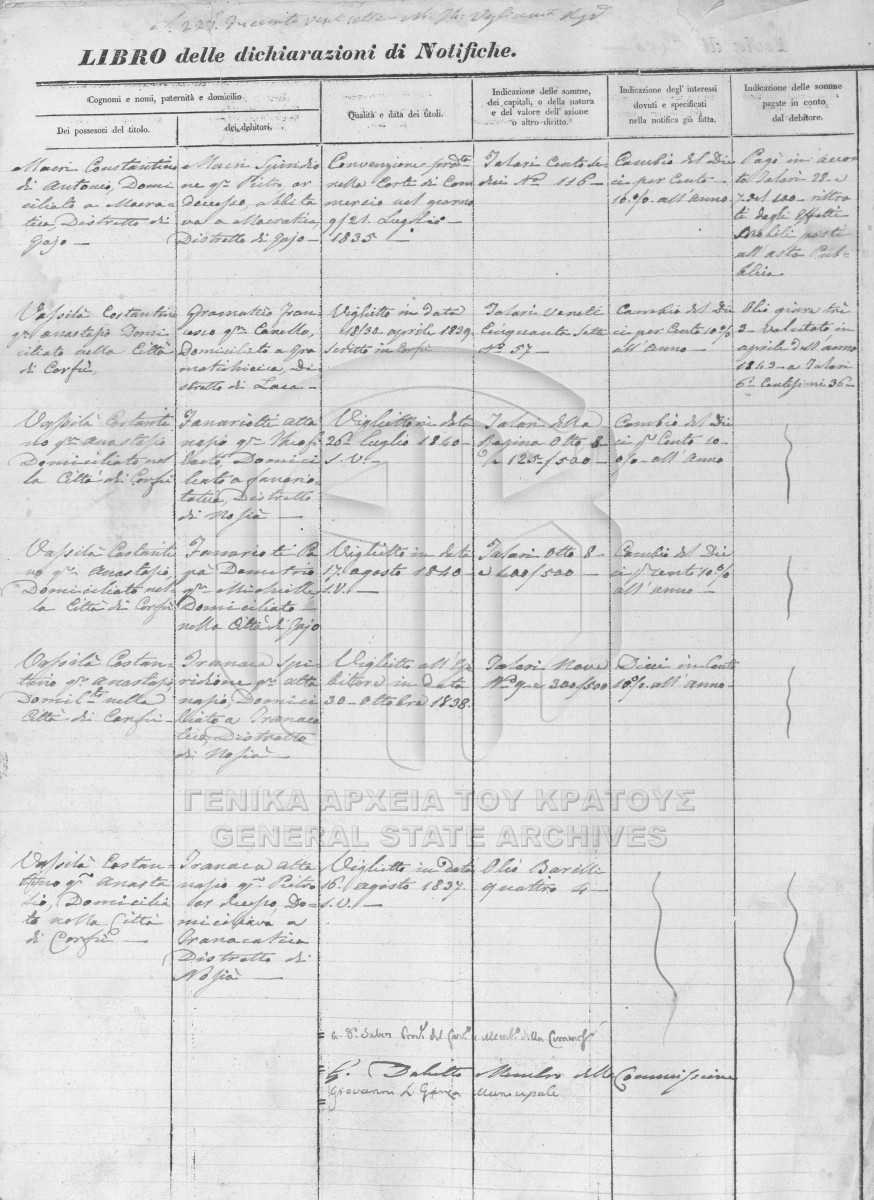 LIBRO delle dichiarazioni di Notifiche.
Cognomi e nomi, paternità e domicilio
Dei possesori del titolo.
dei debitori.
Qualità e data dei titoli.
Indicazione delle somme,
dei capitali, o della natura
e del valore dell'azione
o altro diritto.
Indicazione degl' interessi
dovuti e specificati
nella notifica già fatta.
Indicazione delle somme
pagate in conto
dal debitore.
Macri Constantino
di Antonio, Domi
ciliato a Macra
tica, Distretto di
Gajo —
Macri Spiridio
ne qm Pietro, or
decesso, abbita
va a Macratica,
Distretto di Gajo —
Convenzione
nella Corte di Com
mercio nel giorno
9/21. Luglio
1835 —
Talari Cento se
dici No 116 —
Cambio del Die
ci per Cento
10 % all'Anno
Pagò in accon
to Talari 22. e
rittra
ti dagli Effetti
Mobili posti
all'asta Pub=
blica
Vassilà Costantino
qm Anastasio Domi
ciliato nella Città
di Corfù,
Gramatico Fran
cesco qm Canello,
Domiciliato a Gra
matichieica, Di
stretto di Laca —
Viglietto in data
aprile 1839.
scritto in Corfù
Talari Veneti
Cinquanta Sette
No 57 —
Cambio del Die
ci per Cento 10 %
all'Anno —
Olio giare trè
3 — valutato in
aprile dell'anno
1843 — a Talari
6. Centesimi 36 —
Vassilà Costanti
no qm Anastasio
Domiciliato nel
la Città di Corfù
Fanarioti Atta
nasio qm Teofi
Domici
liato a Fanario
tatica, Distretto
di Nosià —
Viglietto in data
26. Luglio 1840 —
S.V. —
Talari della
Regina Otto 8
125/500 —
Cambio del Die
ci p Cento 10
o/o all'Anno
Vassilà Costanti
no qm Anastasio,
Domiciliato nel
la Città di Corfù
Fanarioti Pa
pà Demetrio
qm Michiele,
Domiciliato
nella Città di Gajo
Viglietto in data
17. Agosto 1840 —
S.V. —
Talari Otto 8
e 400/500 —
Cambio del Die
ci p cento 10 %
all'anno —
Vassilà Costan=
tino qm Anastasio,
Domilto nella
Città di Corfù —
Franaca Spi
ridione qm Atta
nasio, Domici
liato a Franaca
tica, Distretto
di Nosià —
Viglietto all'
in Data
30 — Ottobre 1838.
Talari Nove
No 9 — e 300/500
Dieci in Cento
10 % all'Anno —
Vassilà Costan=
tino qm Anasta
sio, Domicilia
to nella Città
di Corfù —
Franaca Atta
nasio qm Pietro
or decesso, Do
miciliava a
Franacatica
Distretto di
Nosià —
Viglietto in data
16. Agosto 1837.
S.V. —
Olio Barilli
quattro 4 —
Membro della Commissione
Giovanni
Municipale
ΓΕΝΙΚΑ ΑΡΧΕΙΑ ΤΟΥ ΚΡΑΤΟΥΣ
GENERAL STATE ARCHIVES